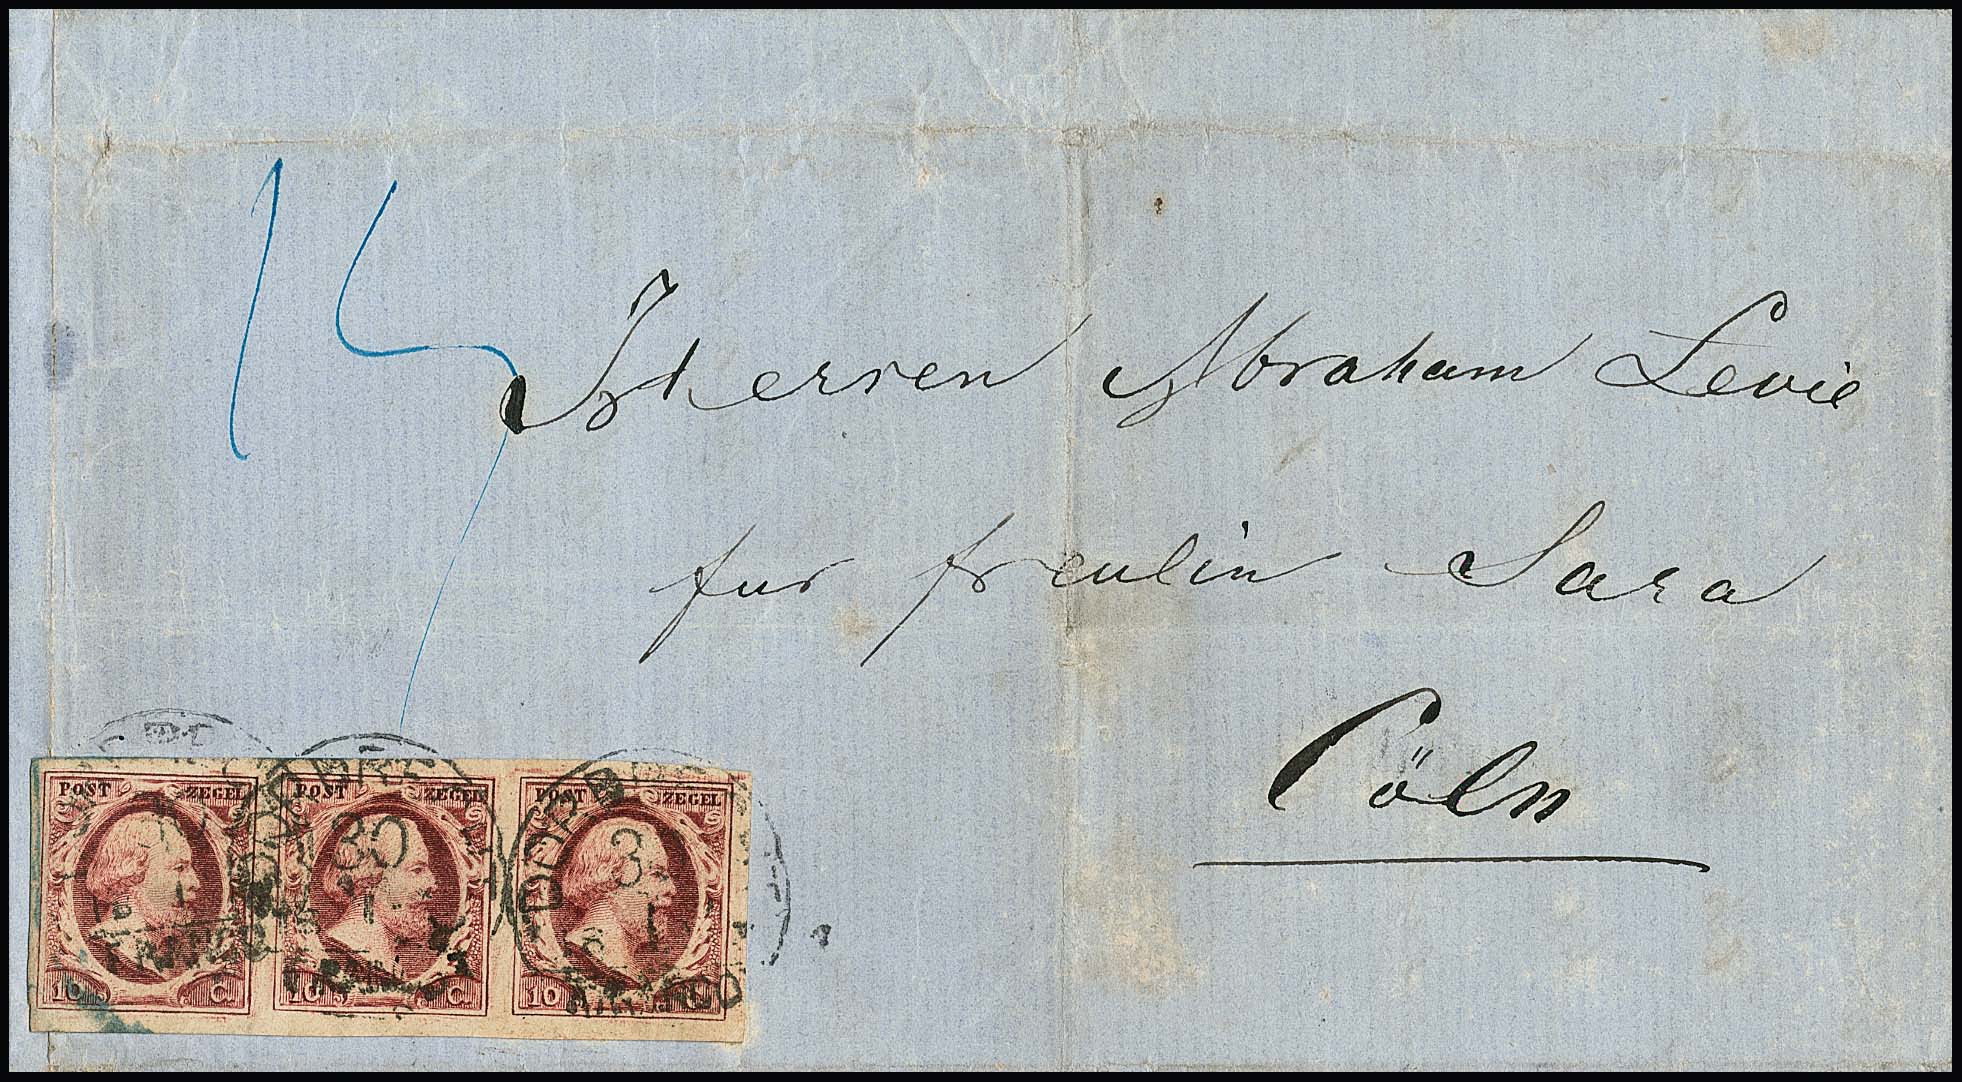 Herren Abraham Levie
fur freulin Sara
Cöln
POST ZEGEL POST ZEGEL POST ZEGEL
30 3
10 C. 10 C. 10